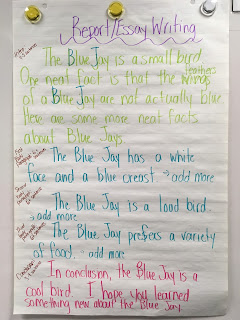 Report/Essay Writing
The Blue Jay is a small bird.
One neat fact is that the feathers
of a Blue Jay are not actually blue.
Here are some more neat facts
about Blue Jays.
The Blue Jay has a white
face and a blue creast. → add more
The Blue Jay is a loud bird.
→ add more
The Blue Jay prefers a variety
of food. add more
In conclusion, the Blue Jay is a
cool bird. I hope you learned
something new about the Blue Jay.